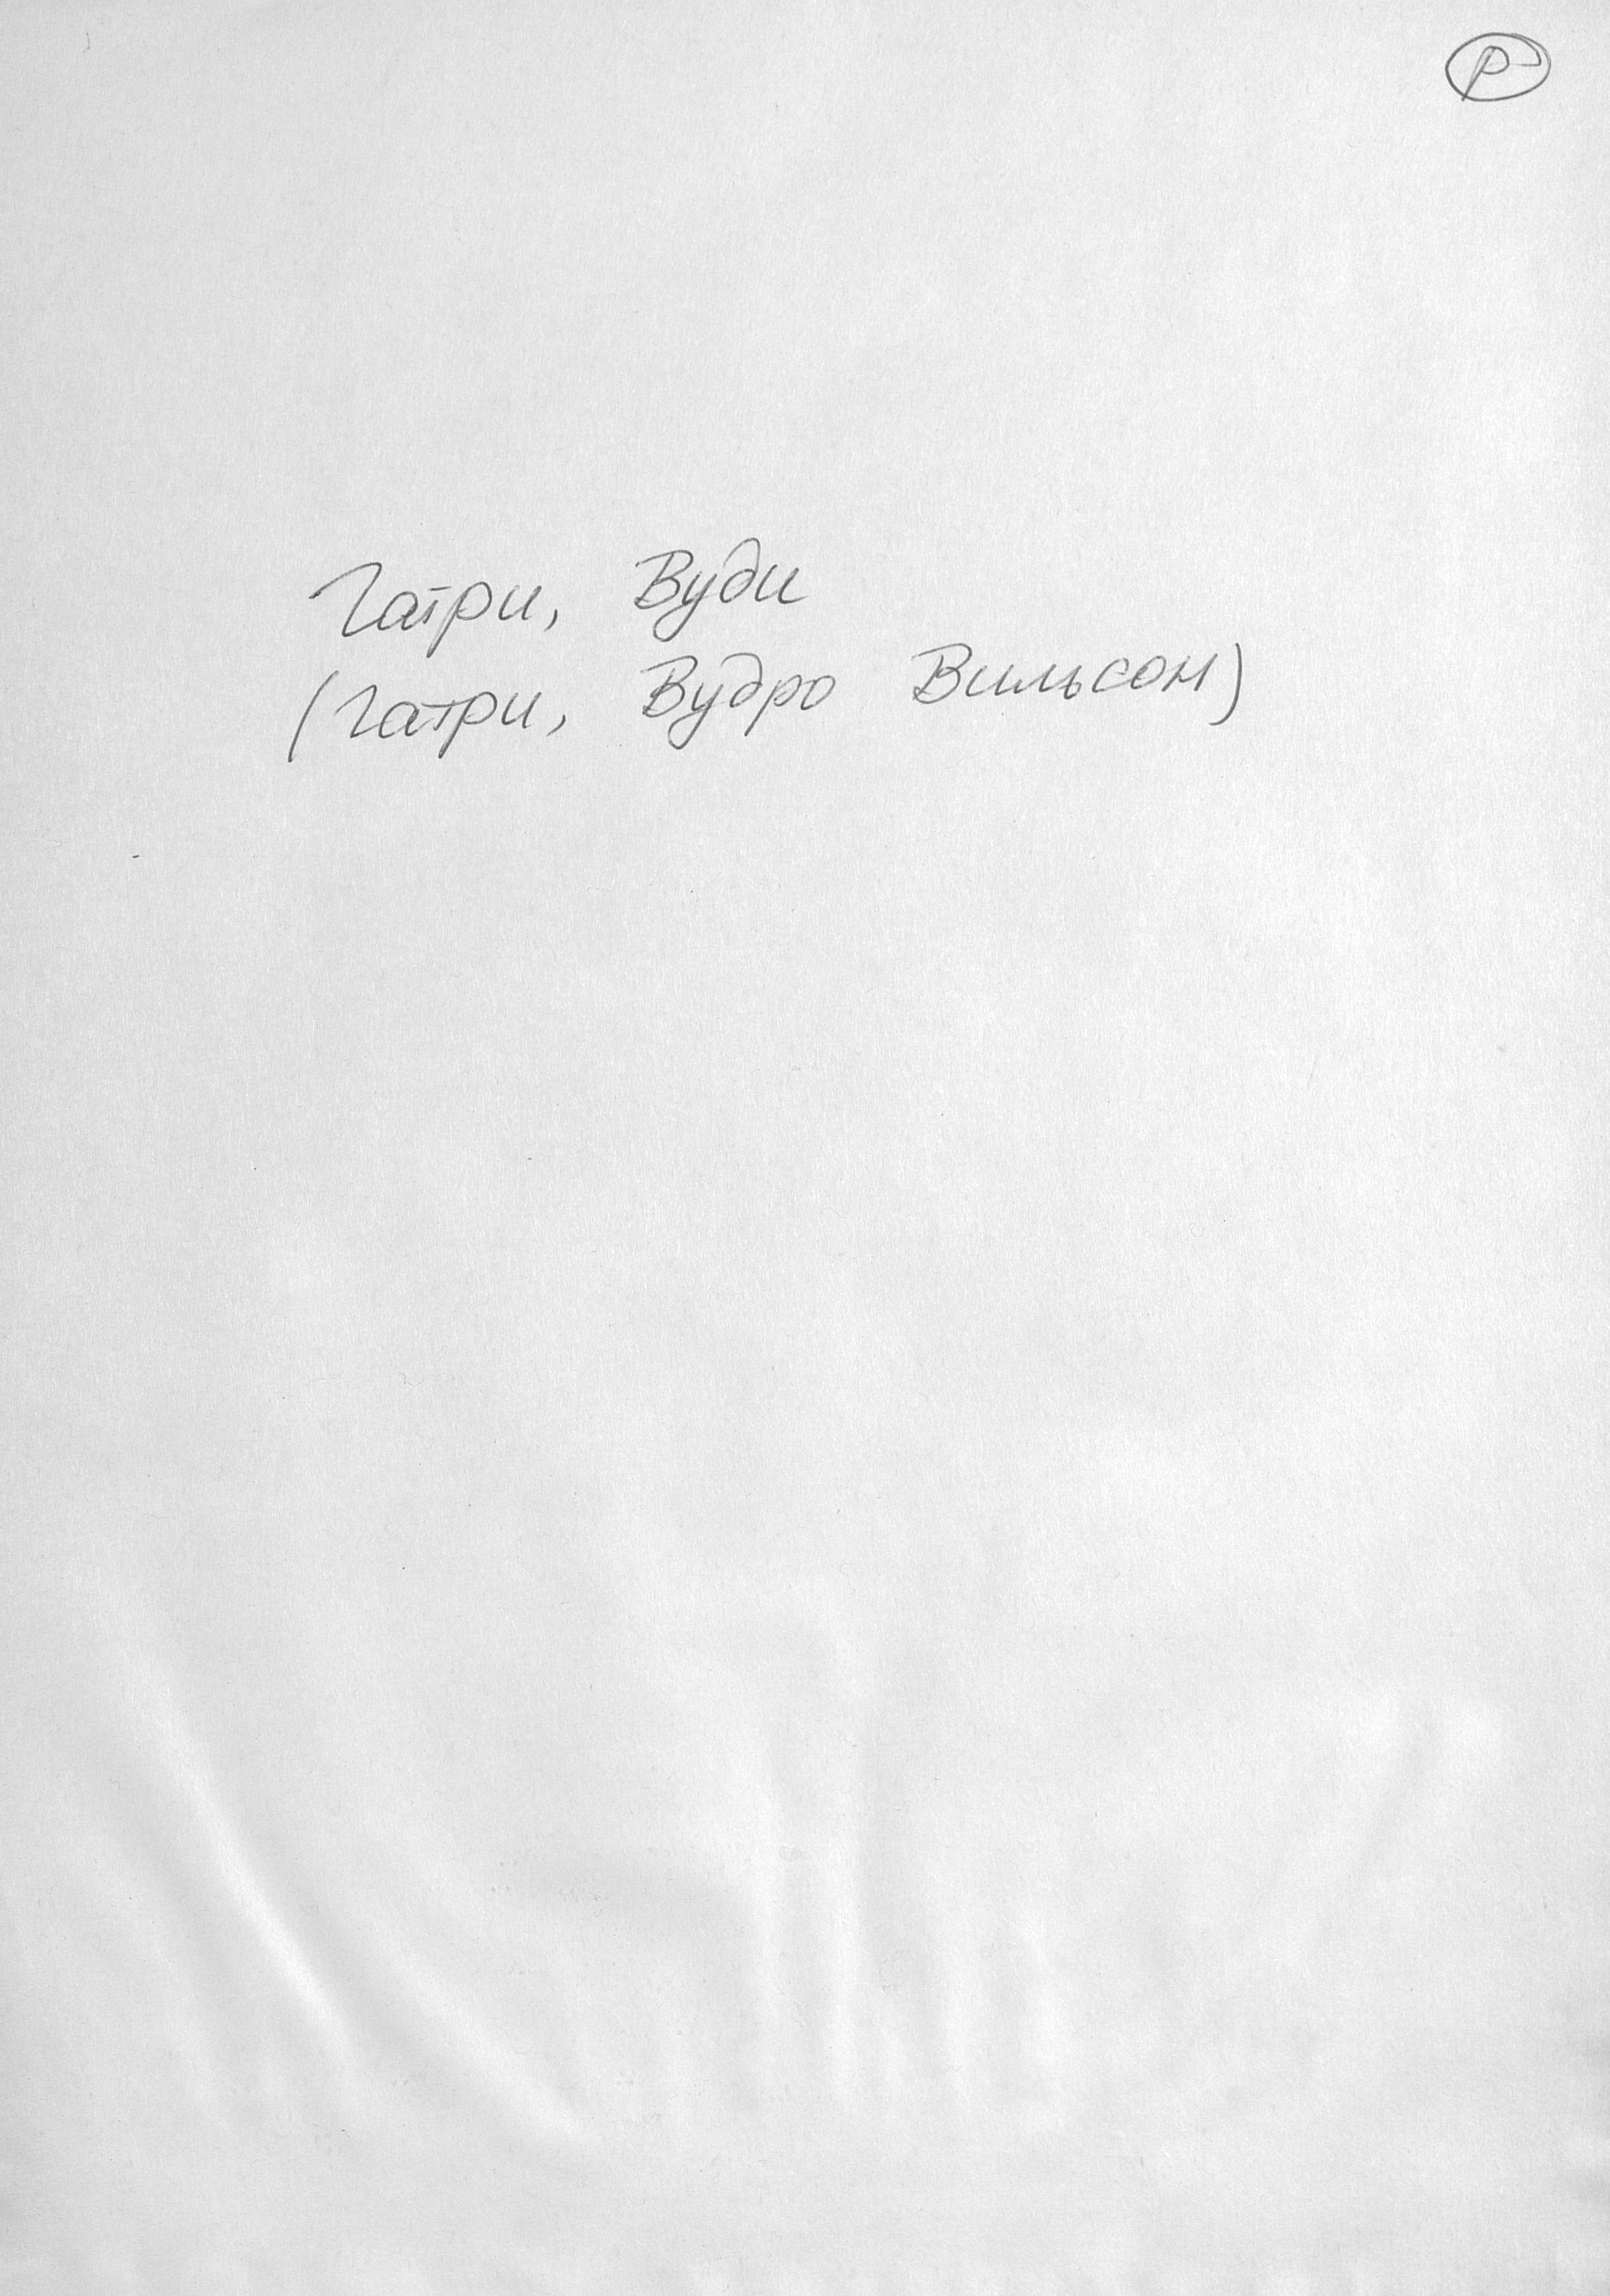 Р
Гатри, Вуди
(Гатри, Вудро Вильсон)